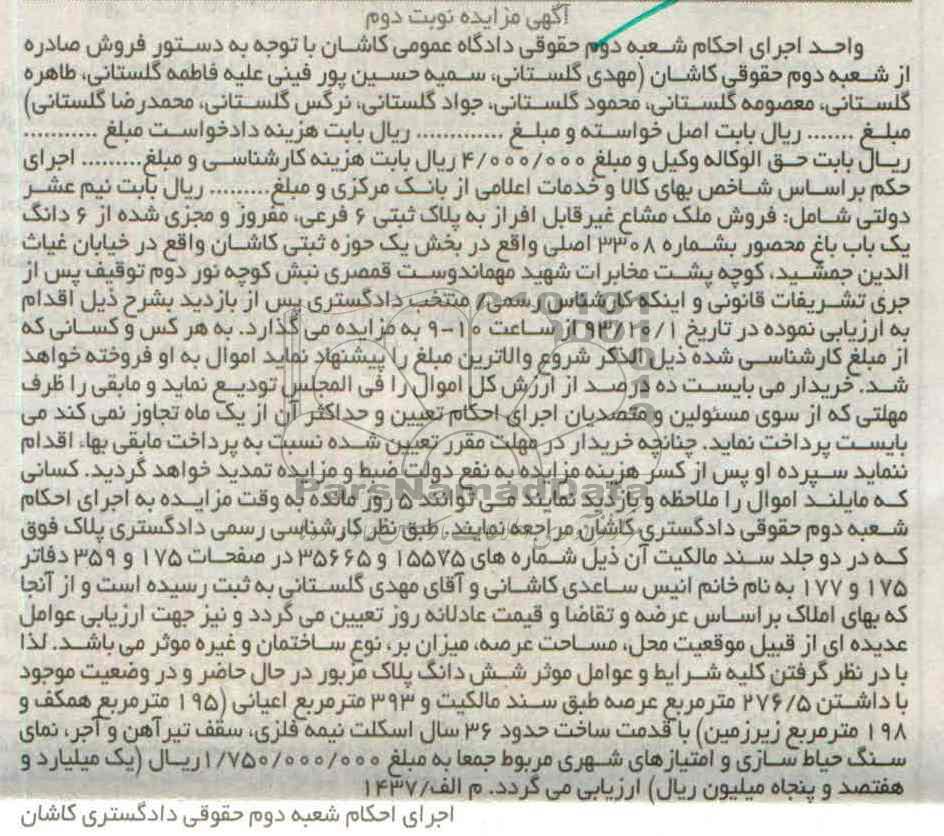 آگهی مزایده نوبت دوم
واحد اجرای احکام شعبه دوم حقوقی دادگاه عمومی کاشان با توجه به دستور فروش صادره
از شعبه دوم حقوقی کاشان (مهدی گلستانی، سمیه حسین پور فینی علیه فاطمه گلستانی، طاهره
گلستانی، معصومه گلستانی، محمود گلستانی، جواد گلستانی، نرگس گلستانی، محمدرضا گلستانی)
مبلغ ....... ریال بابت اصل خواسته و مبلغ ............. ریال بابت هزینه دادخواست مبلغ ...........
ریال بابت حق الوکاله وکیل و مبلغ ۴/۰۰۰/۰۰۰ ریال بابت هزینه کارشناسی و مبلغ......... اجرای
حکم براساس شاخص بهای کالا و خدمات اعلامی از بانک مرکزی و مبلغ......... ریال بابت نیم عشر
دولتی شامل: فروش ملک مشاع غیرقابل افراز به پلاک ثبتی ۶ فرعی، مفروز و مجزی شده از ۶ دانگ
یک باب باغ محصور بشماره ۳۳۰۸ اصلی واقع در بخش یک حوزه ثبتی کاشان واقع در خیابان غیاث
الدین جمشید، کوچه پشت مخابرات شهید مهماندوست قمصری نبش کوچه نور دوم توقیف پس از
جری تشریفات قانونی و اینکه کارشناس رسمی/ منتخب دادگستری پس از بازدید بشرح ذیل اقدام
به ارزیابی نموده در تاریخ ۹۳/۱۰/۱ از ساعت ۱۰-۹ به مزایده می گذارد. به هر کس و کسانی که
از مبلغ کارشناسی شده ذیل الذکر شروع والاترین مبلغ را پیشنهاد نماید اموال به او فروخته خواهد
شد. خریدار می بایست ده درصد از ارزش کل اموال را فی المجلس تودیع نماید و مابقی را ظرف
مهلتی که از سوی مسئولین و متصدیان اجرای احکام تعیین و حداکثر آن از یک ماه تجاوز نمی کند می
بایست پرداخت نماید. چنانچه خریدار در مهلت مقرر تعیین شده نسبت به پرداخت مابقی بها، اقدام
ننماید سپرده او پس از کسر هزینه مزایده به نفع دولت ضبط و مزایده تمدید خواهد گردید. کسانی
که مایلند اموال را ملاحظه و بازدید نمایند می توانند ۵ روز مانده به وقت مزایده به اجرای احکام
ParsNamadData
شعبه دوم حقوقی دادگستری کاشان مراجعه نمایند. طبق نظر کارشناسی رسمی دادگستری پلاک فوق
که در دو جلد سند مالکیت آن ذیل شماره های ۱۵۵۷۵ و ۳۵۶۶۵ در صفحات ۱۷۵ و ۳۵۹ دفاتر
۱۷۵ و ۱۷۷ به نام خانم انیس ساعدی کاشانی و آقای مهدی گلستانی به ثبت رسیده است و از آنجا
که بهای املاک براساس عرضه و تقاضا و قیمت عادلانه روز تعیین می گردد و نیز جهت ارزیابی عوامل
عدیده ای از قبیل موقعیت محل، مساحت عرصه، میزان بر، نوع ساختمان و غیره موثر می باشد. لذا
با در نظر گرفتن کلیه شرایط و عوامل موثر شش دانگ پلاک مزبور در حال حاضر و در وضعیت موجود
با داشتن ۲۷۶/۵ مترمربع عرصه طبق سند مالکیت و ۳۹۳ مترمربع اعیانی (۱۹۵ مترمربع همکف و
۱۹۸ مترمربع زیرزمین) با قدمت ساخت حدود ۳۶ سال اسکلت نیمه فلزی، سقف تیرآهن و آجر، نمای
سنگ حیاط سازی و امتیازهای شهری مربوط جمعا به مبلغ ۱/۷۵۰/۰۰۰/۰۰۰ ریال (یک میلیارد و
هفتصد و پنجاه میلیون ریال) ارزیابی می گردد. م الف/۱۴۳۷
اجرای احکام شعبه دوم حقوقی دادگستری کاشان